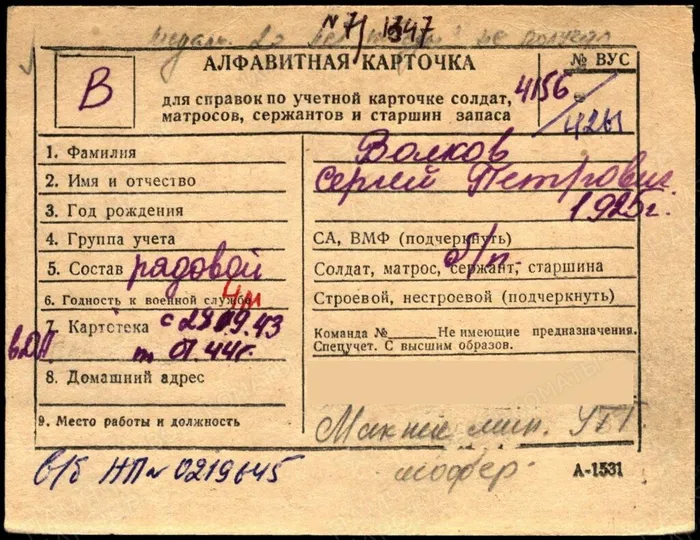 № 7/1347
медаль
не получал
АЛФАВИТНАЯ КАРТОЧКА
№ ВУС
В
для справок по учетной карточке солдат,
матросов, сержантов и старшин запаса
4156
/4261
1. Фамилия
Волков
2. Имя и отчество
Сергей Петрович
3. Год рождения
1925г.
4. Группа учета
СА, ВМФ (подчеркнуть)
5. Состав рядовой
Солдат, матрос, сержант, старшина
6. Годность к военной службе
Строевой, нестроевой (подчеркнуть)
7. Картотека с 28.09.43
по 01.44г.
Команда № Не имеющие предназначения.
Спецучет. С высшим образов.
8. Домашний адрес
9. Место работы и должность
шофер
в/б НП № 0219645
А-1531